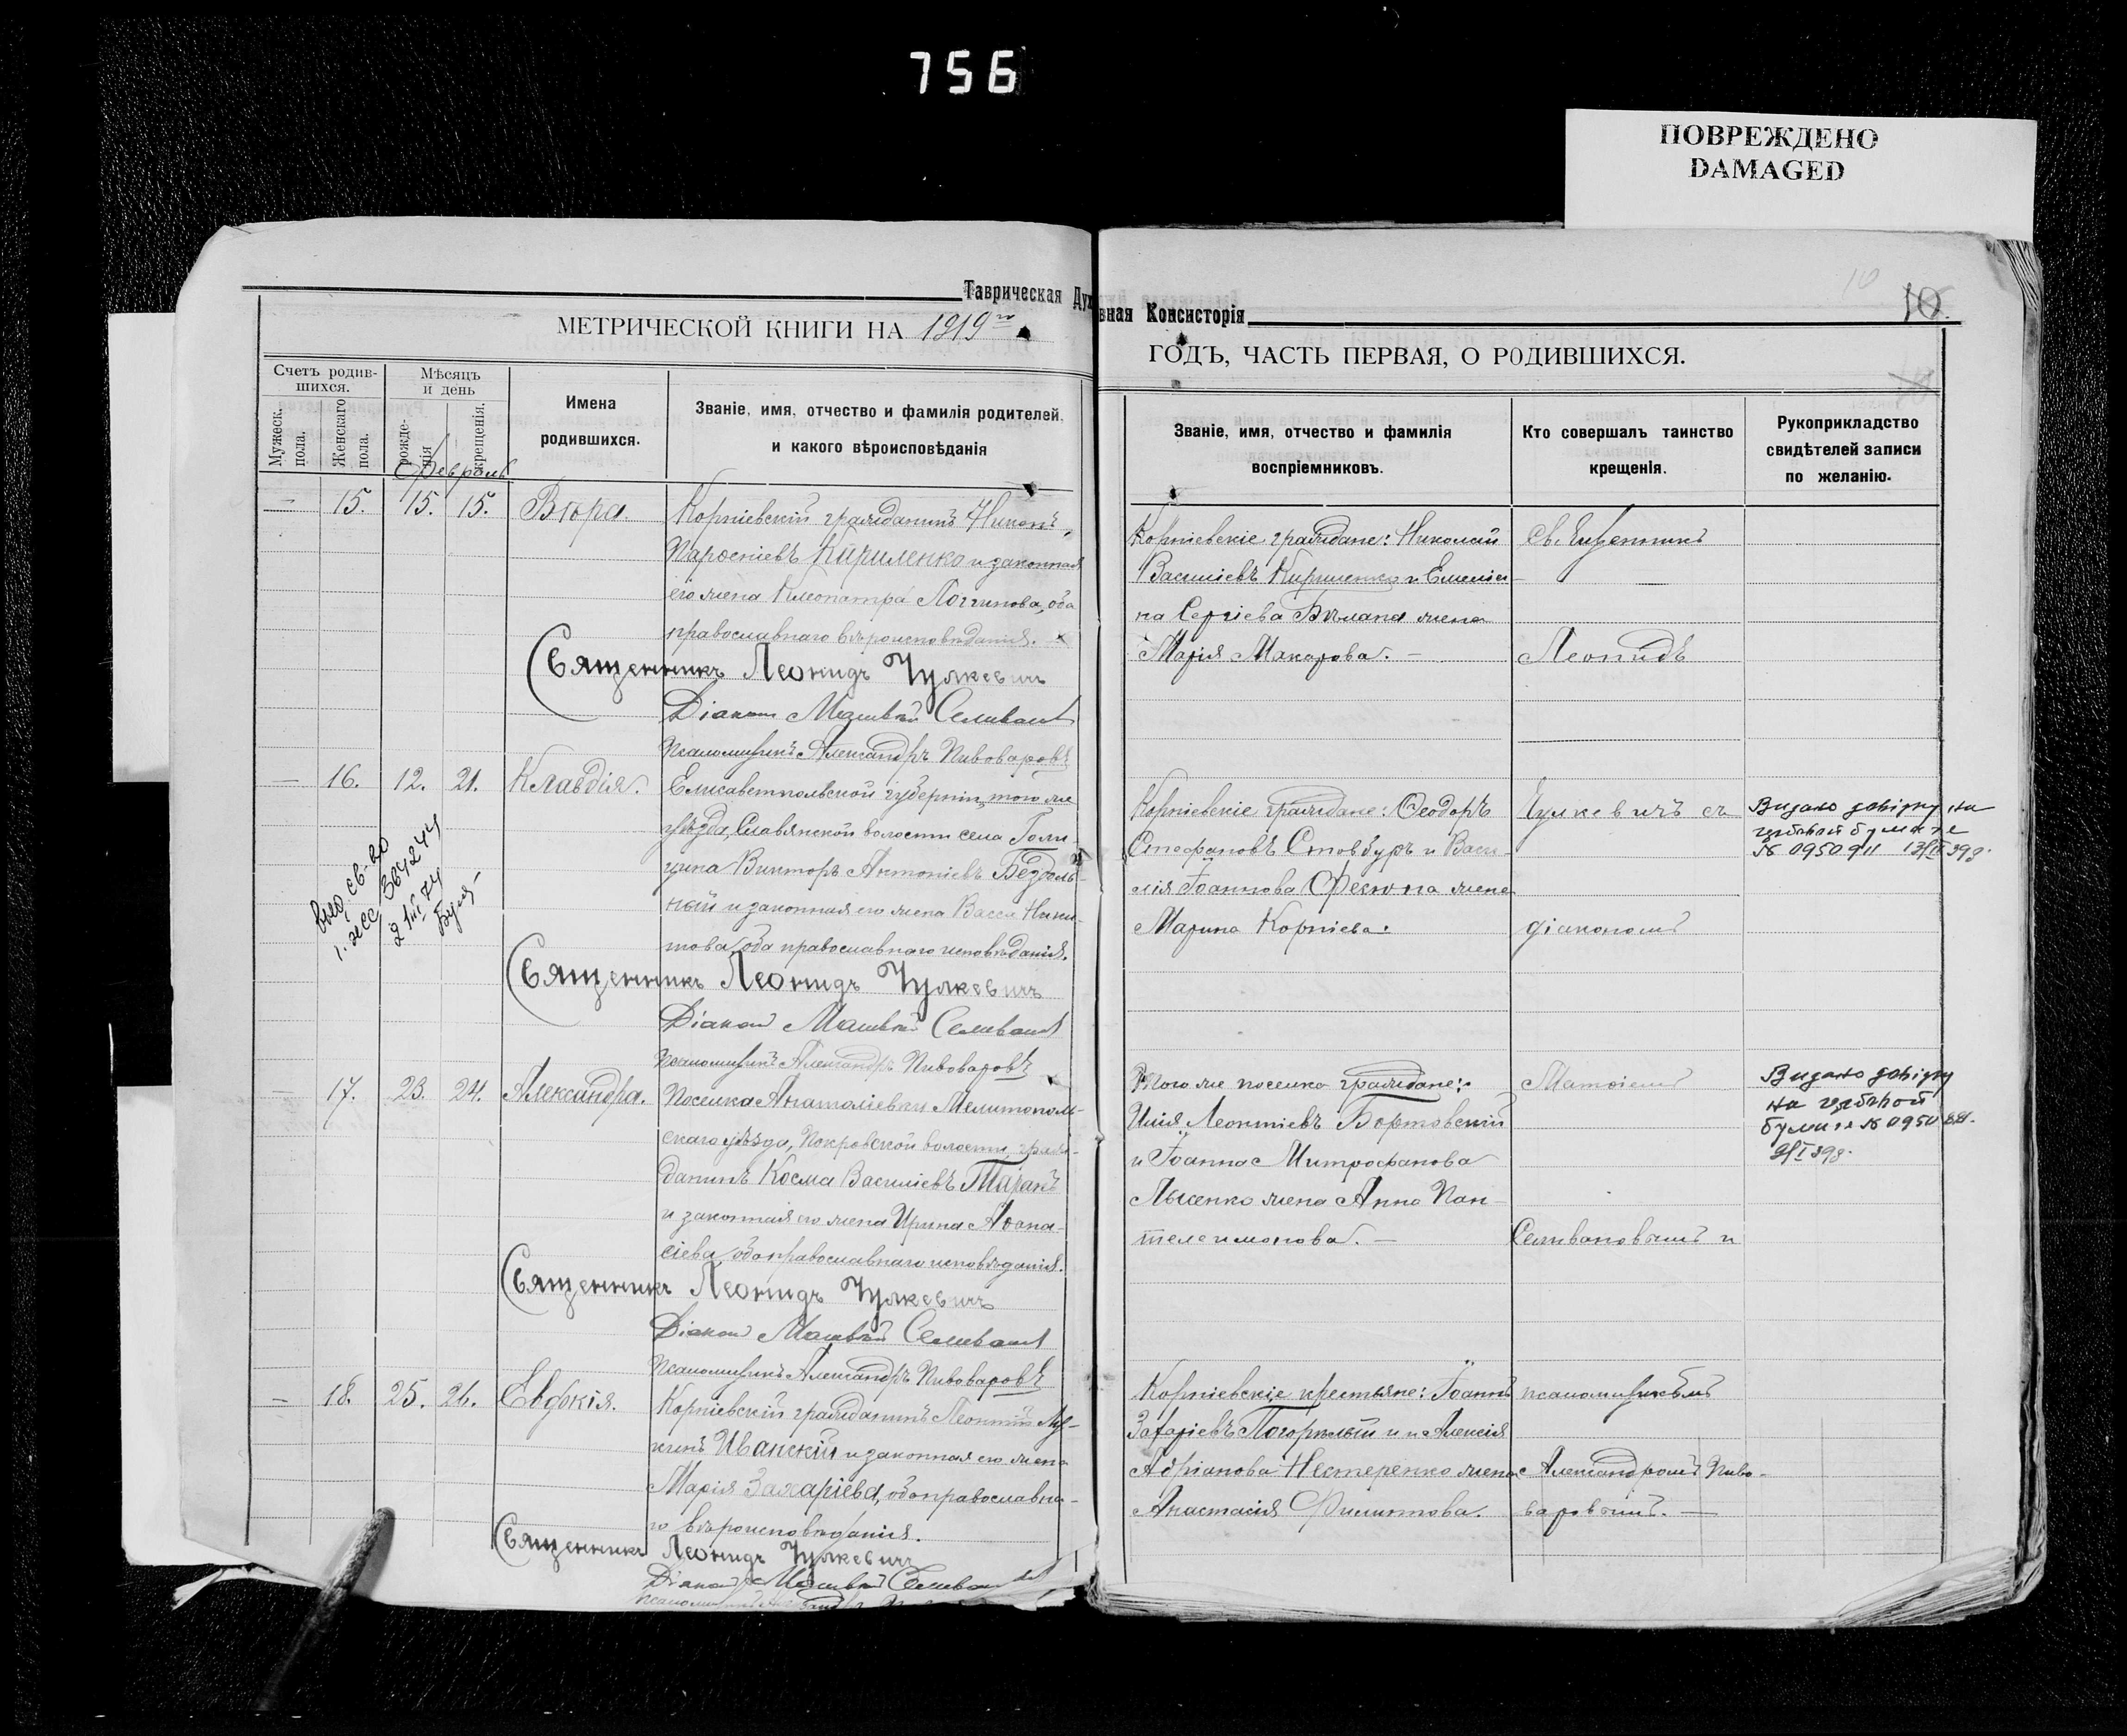 756
ПОВРЕЖДЕНО
DAMAGED
Таврическая Духовная Консисторія
10
10.
МЕТРИЧЕСКОЙ КНИГИ НА 1919го
ГОДЪ, ЧАСТЬ ПЕРВАЯ, О РОДИВШИХСЯ.
Счетъ родив-
шихся.
Мужеск.
пола.
Женскаго
пола.
Мѣсяцъ
и день
рожде-
нія
крещенія.
Имена
родившихся.
Званіе, имя, отчество и фамилія родителей,
и какого вѣроисповѣданія
Званіе, имя, отчество и фамилія
воспріемниковъ.
Кто совершалъ таинство
крещенія.
Рукоприкладство
свидѣтелей записи
по желанію.
Февраль
— 15. 15. 15. Вѣра. Корніевскій гражданинъ Никонъ
Кириленко и законная
его жена Клеопатра Логгинова, оба
православнаго вѣроисповѣданія.
Священникъ Леонидъ Чулкевичъ
Діаконъ Матвѣй Селивановъ
Псаломщикъ Александръ Пивоваровъ
Корніевскіе граждане: Николай
Василіевъ Кириленко и Емелія-
на Сергіева жена
Марія Макарова. —
Священникъ
Леонидъ
— 16. 12. 21. Клавдія. Елисаветпольской губерніи, того же
уѣзда, Славянской волости села Голи-
цина Викторъ Антоніевъ Бездоль-
ный и законная его жена Васса Ники-
това, оба православнаго исповѣданія.
Священникъ Леонидъ Чулкевичъ
Діаконъ Матвѣй Селивановъ
Псаломщикъ Александръ Пивоваровъ
Корніевскіе граждане: Ѳеодоръ
Стефановъ Стовбуръ и Васи-
лія Іоаннова жена
Марина Корніева.
Чулкевичъ съ
діакономъ
Видано довідку на
гербовой бумаге
№ 0950911
выд. св-во
— 17. 23. 24. Александра. Поселка Анатоліевки Мелитополь-
скаго уѣзда, Покровской волости, граж-
данинъ Косма Василіевъ Таранъ
и законная его жена Ирина Аѳана-
сіева, оба православнаго исповѣданія.
Священникъ Леонидъ Чулкевичъ
Діаконъ Матвѣй Селивановъ
Псаломщикъ Александръ Пивоваровъ
Того же поселка граждане:
Илія Леонтіевъ Бортовскій
и Іоанна Митрофанова
Лысенко жена Анна Пан-
телеимонова. —
Матвіемъ
Селивановымъ и
Видано довідку
на гербовой
бумаге №
— 18. 25. 26. Евдокія. Корніевскій гражданинъ Леонтій Лу-
кинъ Иванскій и законная его жена
Марія Захаріева, оба православна-
го вѣроисповѣданія.
Священникъ Леонидъ Чулкевичъ
Діаконъ Матвѣй Селивановъ
Корніевскіе крестьяне: Іоаннъ
Захаріевъ Погорѣлый и Алексія
Адріанова Нестеренко жена
Анастасія Филиппова.
псаломщикомъ
Александромъ Пиво-
варовымъ. —